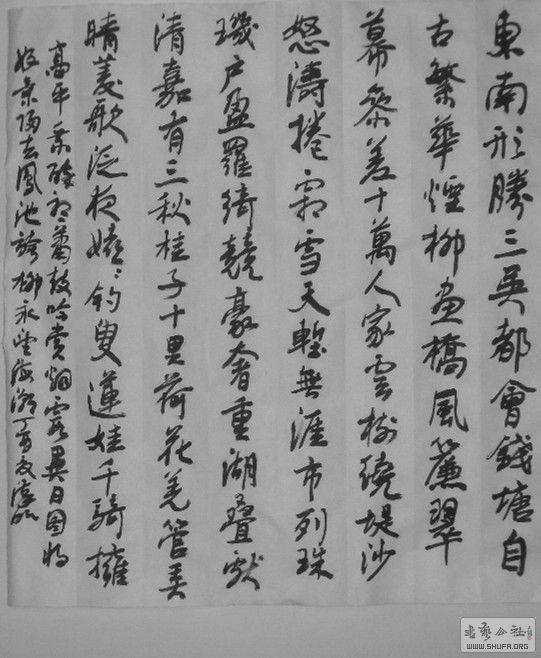 東南形勝三吳都會錢塘自
古繁華煙柳畫橋風簾翠
幕參差十萬人家雲樹繞堤沙
怒濤捲霜雪天塹無涯市列珠
璣戶盈羅綺競豪奢重湖疊巘
清嘉有三秋桂子十里荷花羌管弄
晴菱歌泛夜嬉〻釣叟蓮娃千騎擁
高牙乘醉聽簫鼓吟賞烟霞異日圖將
好景歸去鳳池誇柳永望海潮丁亥
WWW.SHUFA.ORG